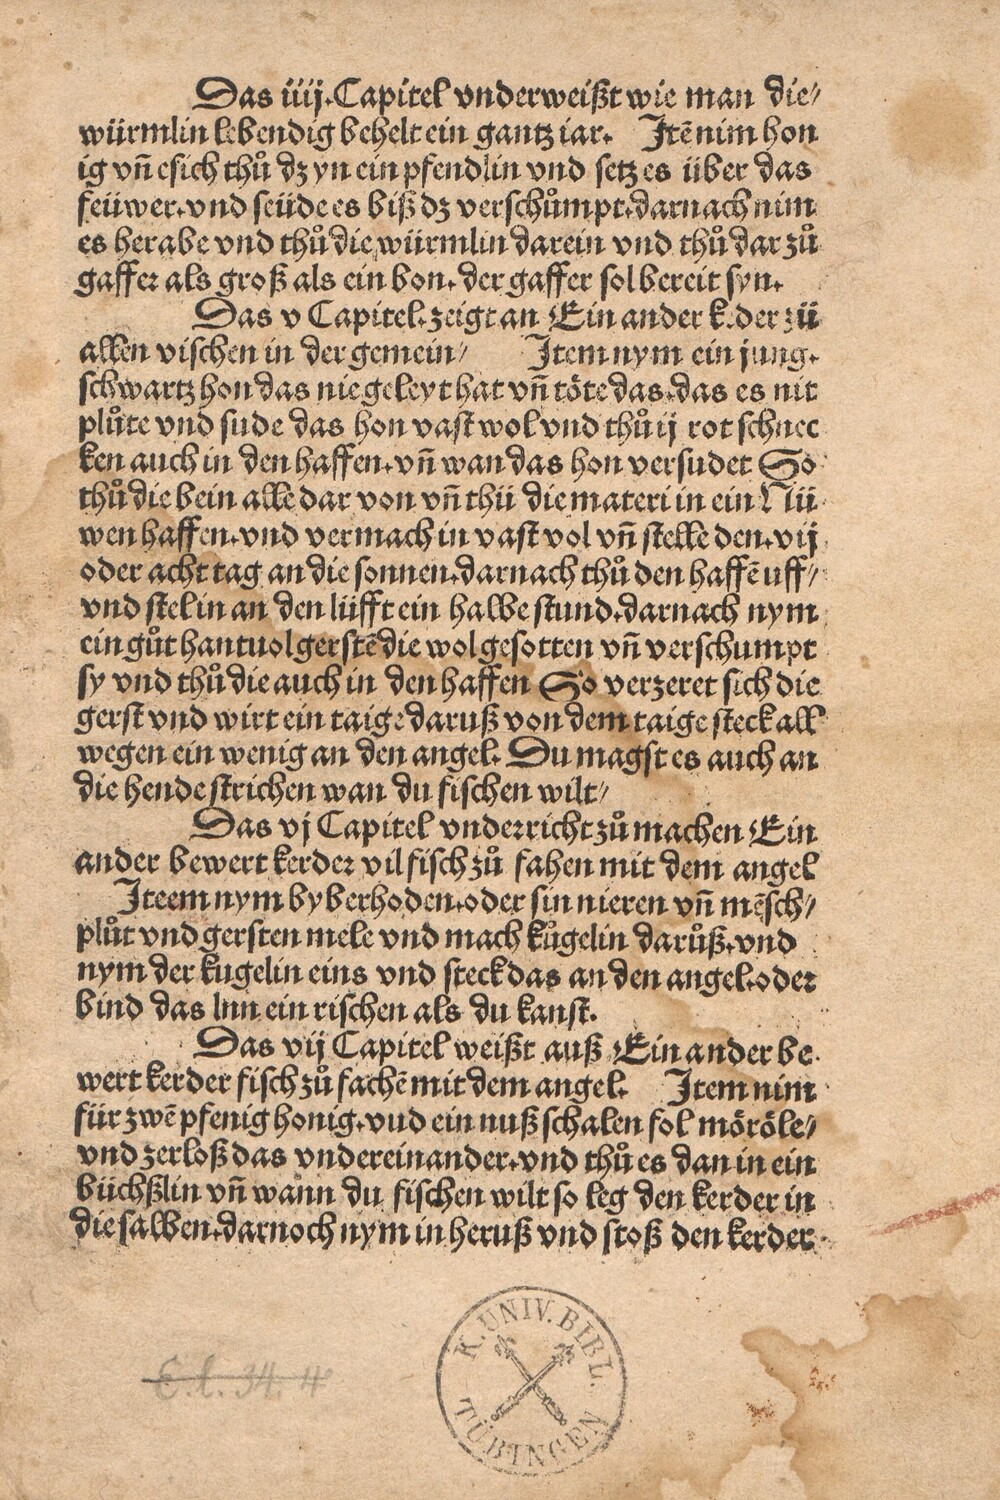 Das iiij.Capitel vnderweißt wie man die/
würmlin lebendig behelt ein gantz iar. Itē nim hon
ig vn̄ esich thů dz yn ein pfendlin vnd setz es über das
feüwer.vnd seüde es biß dz verschůmpt.darnach nim
es herabe vnd thů die würmlin darein vnd thů dar zů
gaffer als groß als ein bon.der gaffer sol bereit syn.
Das v Capitel.zeigt an Ein ander k.der zü
allen vischen in der gemein/ Item nym ein jung.
schwartz hon das nie geleyt hat vn̄ töte das.das es nit
plůte vnd sude das hon vast wol vnd thů ij rot schnec
ken auch in den haffen.vn̄ wan das hon versudet So
thů die bein alle dar von vn̄ thü die materi in ein Nü
wen haffen.vnd vermach in vast vol vn̄ stelle den.vij
oder acht tag an die sonnen.darnach thů den haffē uff/
vnd stel in an den lüfft ein halbe stund.darnach nym
ein gůt hantuol gerstē die wol gesotten vn̄ verschumpt
sy vnd thů die auch in den haffen So verzeret sich die
gerst vnd wirt ein taige daruß von dem taige steck all
wegen ein wenig an den angel. Du magst es auch an
die hende strichen wan du fischen wilt/
Das vj Capitel vnderricht zů machen Ein
ander bewert kerder vil fisch zů fahen mit dem angel
Iteem nym byberhoden.oder sin nieren vn̄ mēsch/
plůt vnd gersten mele vnd mach kůgelin darůß.vnd
nym der kugelin eins vnd steck das an den angel.oder
bind das Inn ein rischen als du kanst.
Das vij Capitel weißt auß Ein ander be.
wert kerder fisch zů fachē mit dem angel. Item nim
für zwē pfenig honig.vud ein nuß schalen fol möröle/
vnd zerloß das vndereinander.vnd thů es dan in ein
büchßlin vn̄ wann du fischen wilt so leg den kerder in
die salben.darnoch nym in heruß vnd stoß den kerder
K. UNIV. BIBL.
TÜBINGEN
E.l. 34. 4